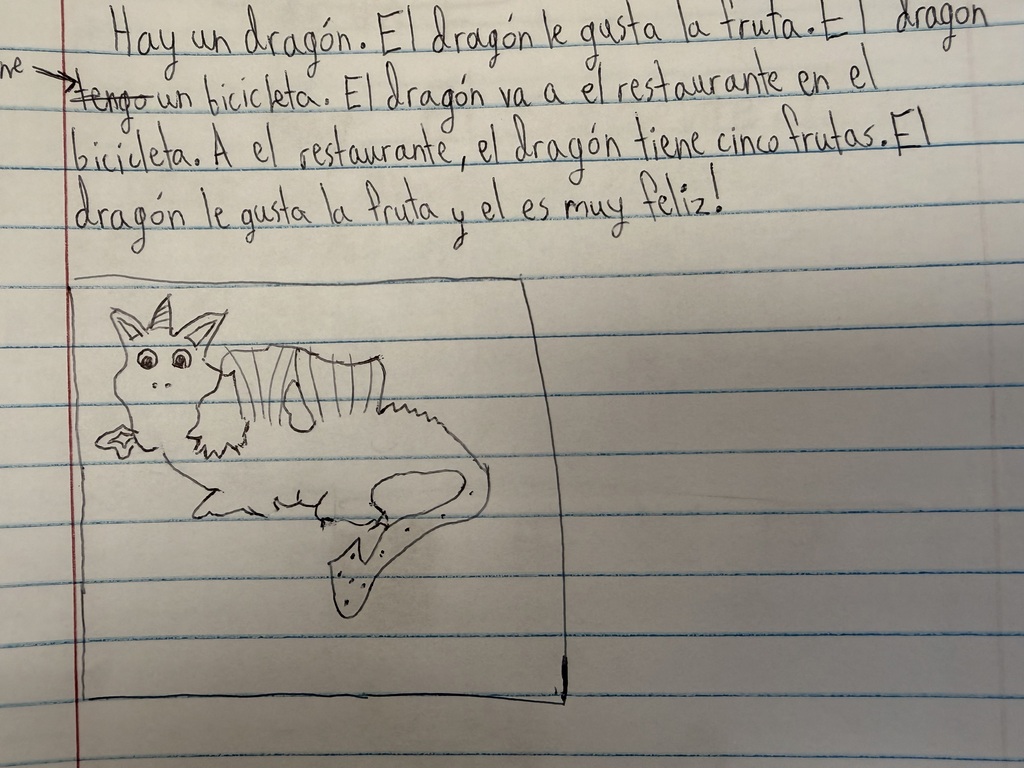 Hay un dragón. El dragón le gusta la fruta. El dragon
tengo un bicicleta. El dragón va a el restaurante en el
bicicleta. A el restaurante, el dragón tiene cinco frutas. El
dragón le gusta la fruta y el es muy feliz!